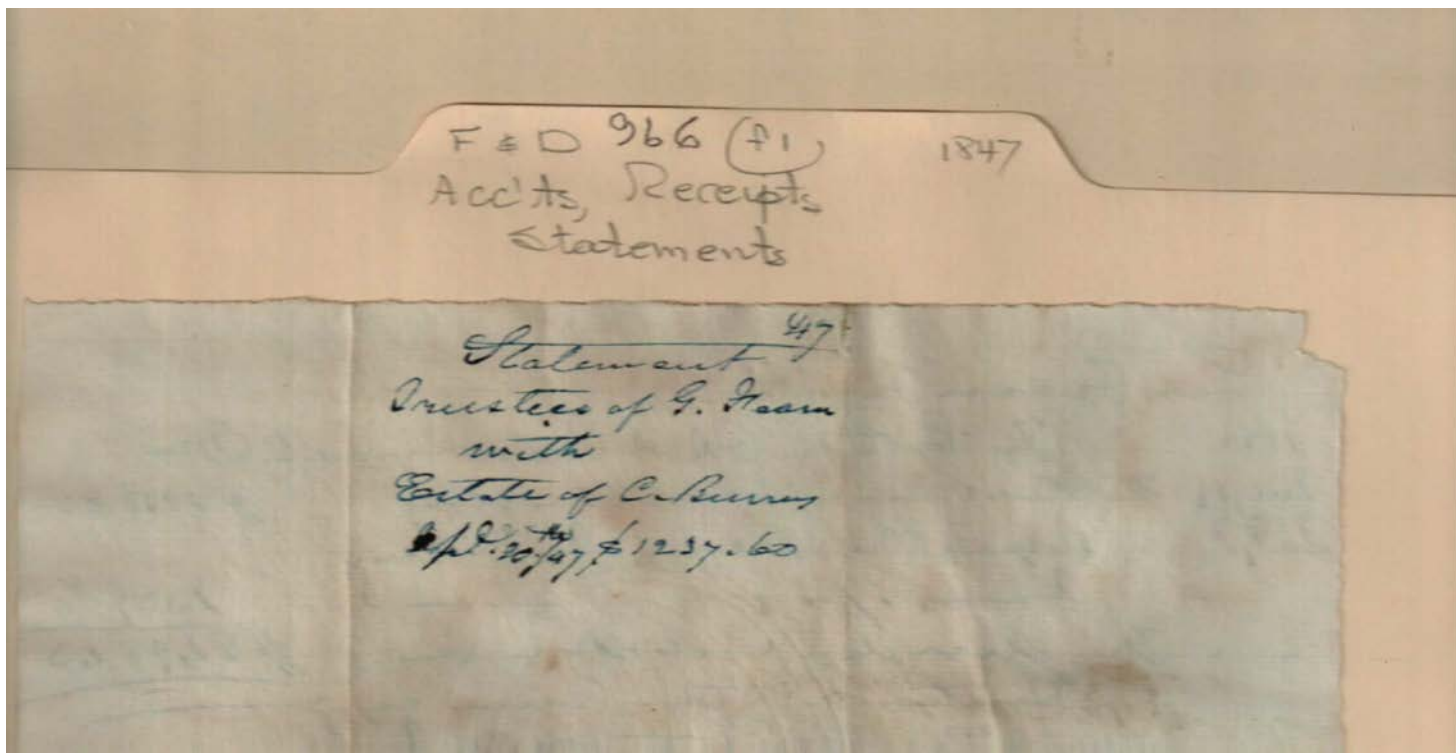 F & D 966 (f1) 1847
Acc'ts, Receipts
Statements
47
Statement
Trustees of G. Hearn
with
Estate of C. Burrus
20th/47 $1237.60